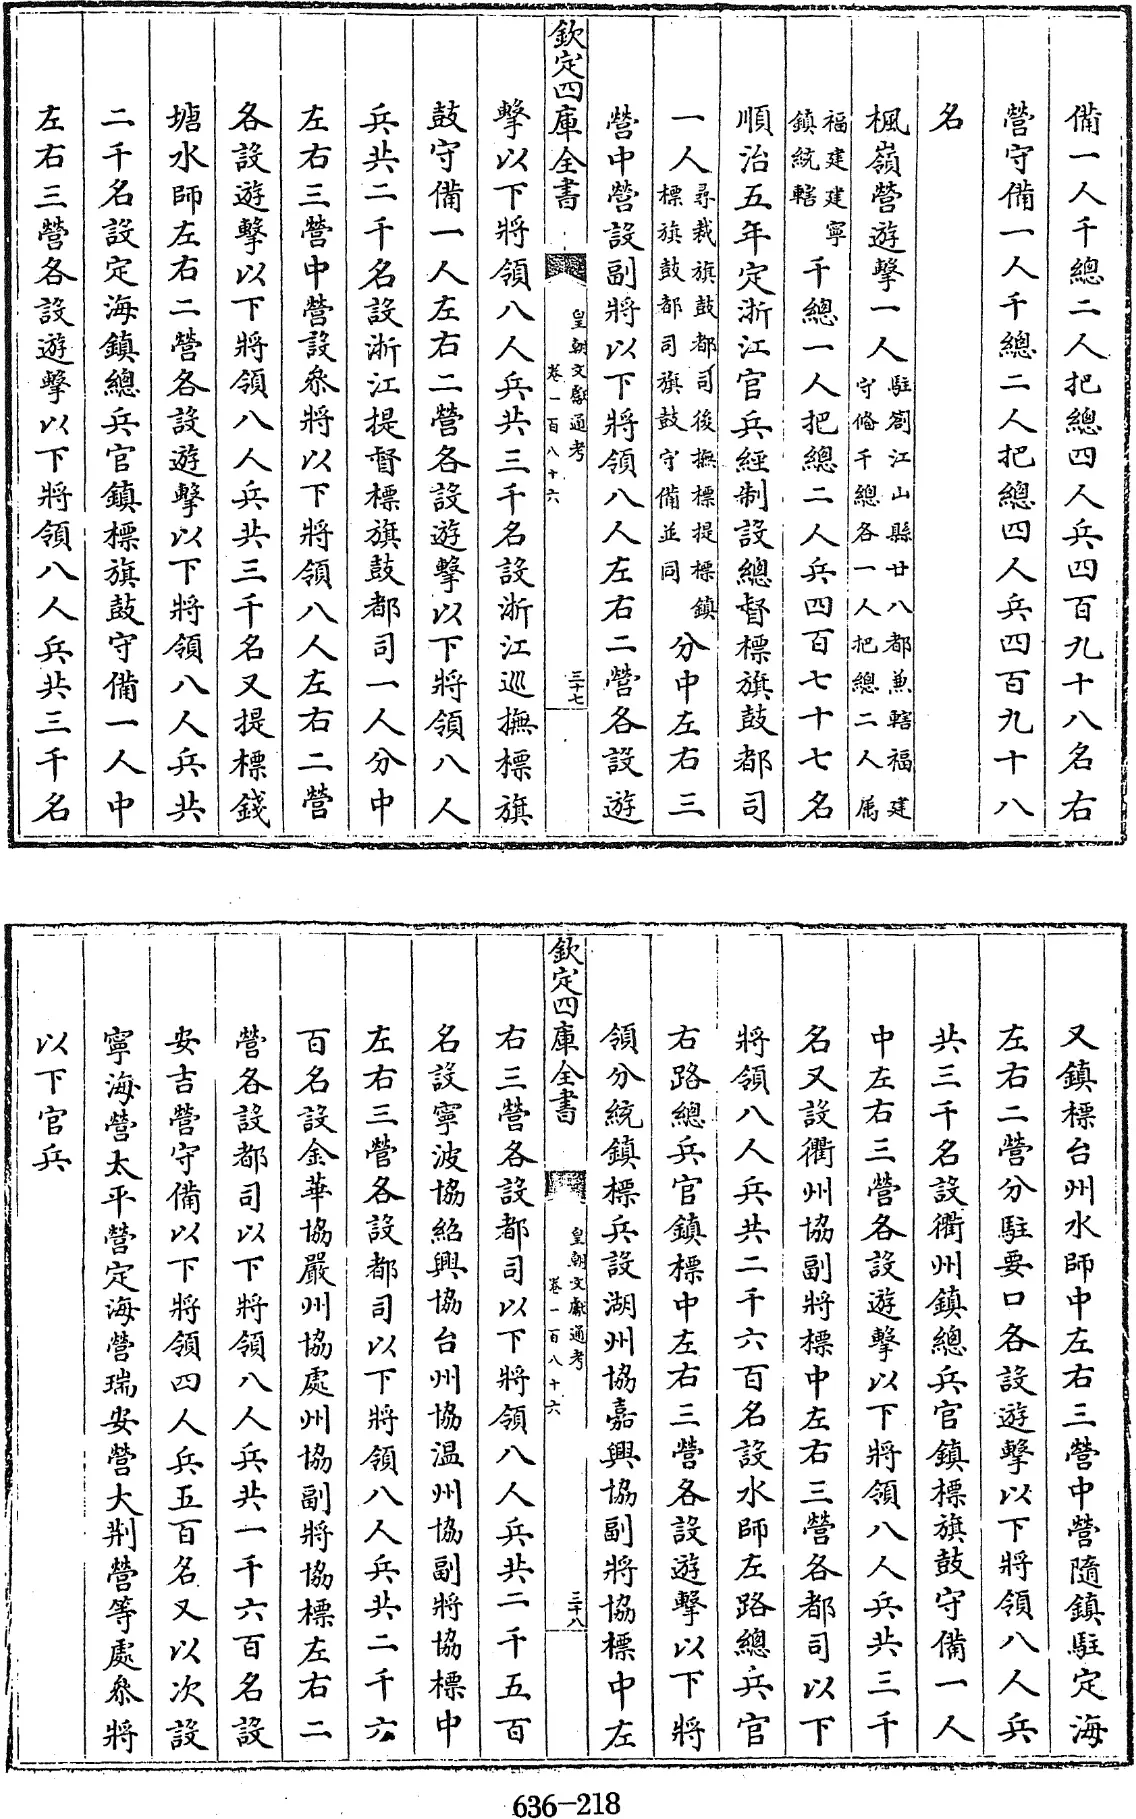 備一人千總二人把總四人兵四百九十八名右
營守備一人千總二人把總四人兵四百九十八
名
楓嶺營遊擊一人駐劄江山縣廿八都兼轄福建
守偹千總各一人把總二人屬
福建建寧
鎮統轄
千總一人把總二人兵四百七十七名
順治五年定浙江官兵經制設總督標旗鼓都司
一人尋裁旗鼓都司後撫標提標鎮
標旗鼓都司旗鼓守備並同
分中左右三
營中營設副將以下將領八人左右二營各設遊
欽定四庫全書
皇朝文獻通考
卷一百八十六
三十七
擊以下將領八人兵共三千名設浙江巡撫標旗
鼓守備一人左右二營各設遊擊以下將領八人
兵共二千名設浙江提督標旗鼓都司一人分中
左右三營中營設叅將以下將領八人左右二營
各設遊擊以下將領八人兵共三千名又提標錢
塘水師左右二營各設遊擊以下將領八人兵共
二千名設定海鎮總兵官鎮標旗鼓守備一人中
左右三營各設遊擊以下將領八人兵共三千名
又鎮標台州水師中左右三營中營隨鎮駐定海
左右二營分駐要口各設遊擊以下將領八人兵
共三千名設衢州鎮總兵官鎮標旗鼓守備一人
中左右三營各設遊擊以下將領八人兵共三千
名又設衢州協副將標中左右三營各都司以下
將領八人兵共二千六百名設水師左路總兵官
右路總兵官鎮標中左右三營各設遊擊以下將
領分統鎮標兵設湖州協嘉興協副將協標中左
欽定四庫全書
皇朝文獻通考
卷一百八十六
三十八
右三營各設都司以下將領八人兵共二千五百
名設寧波協紹興協台州協温州協副將協標中
左右三營各設都司以下將領八人兵共二千六
百名設金華協嚴州協處州協副將協標左右二
營各設都司以下將領八人兵共一千六百名設
安吉營守備以下將領四人兵五百名又以次設
寧海營太平營定海營瑞安營大荆營等處叅將
以下官兵
636-218